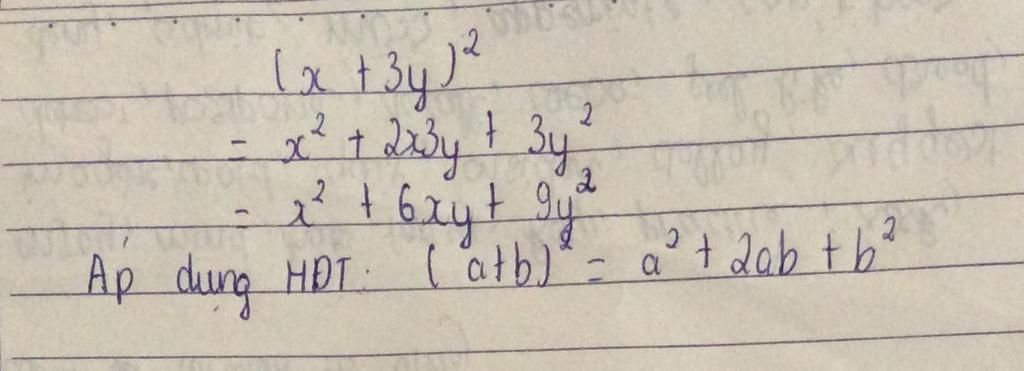 (x + 3y)²
= x² + 2x3y + 3y²
= x² + 6xy + 9y²
Áp dụng HĐT: (a+b)² = a² + 2ab + b²